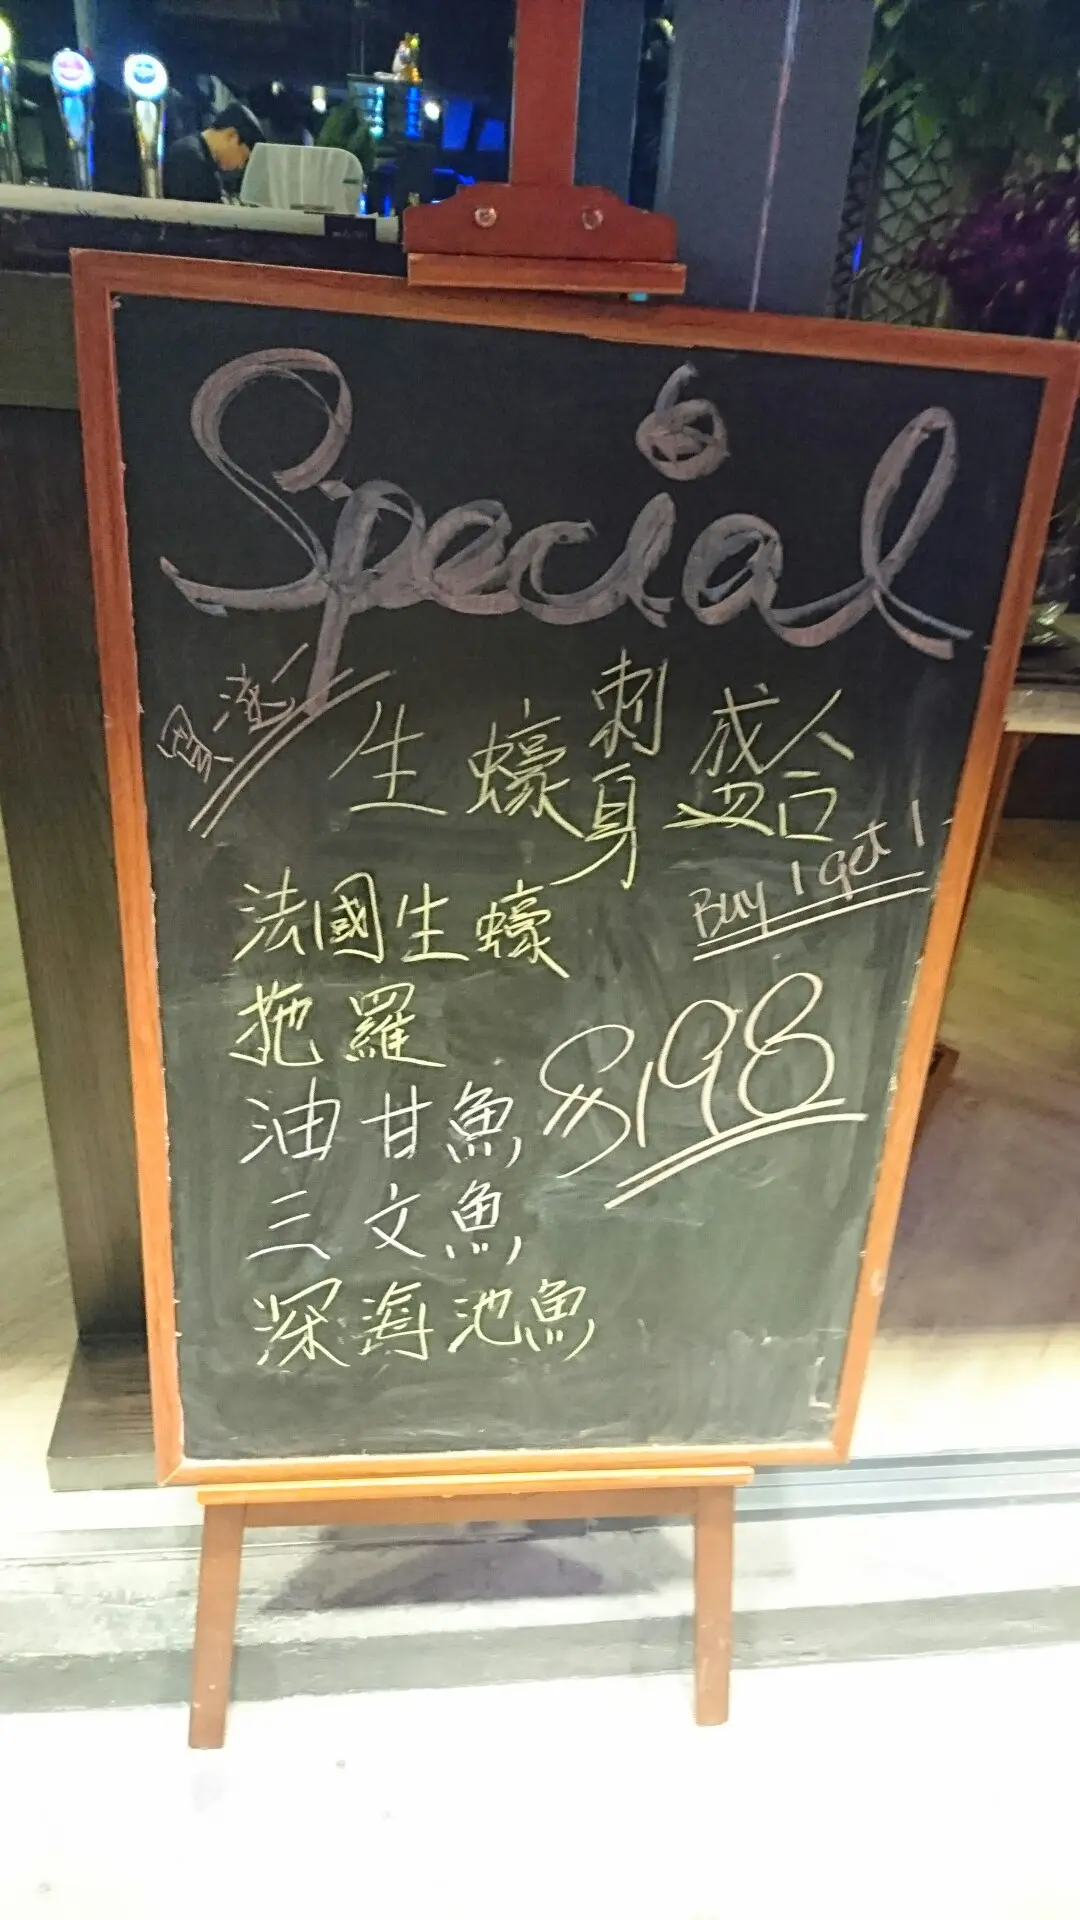 Special
生蠔刺身盛合
Buy 1 get 1
法國生蠔
拖羅
$198
油甘魚
三文魚
深海池魚